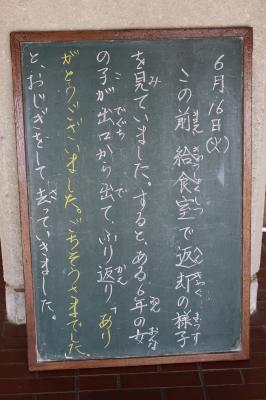 6月16日(火)
この前、給食室で返却の様子
を見ていました。すると、ある6年の女
の子が出口から出て、ふり返り「あり
がとうございました。ごちそうさまでした」
と、おじぎをして、去っていきました。